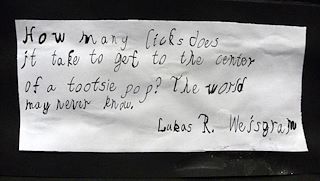 How many licks does
it take to get to the center
of a tootsie pop? The world
may never know.
Lukas R. Weisgram